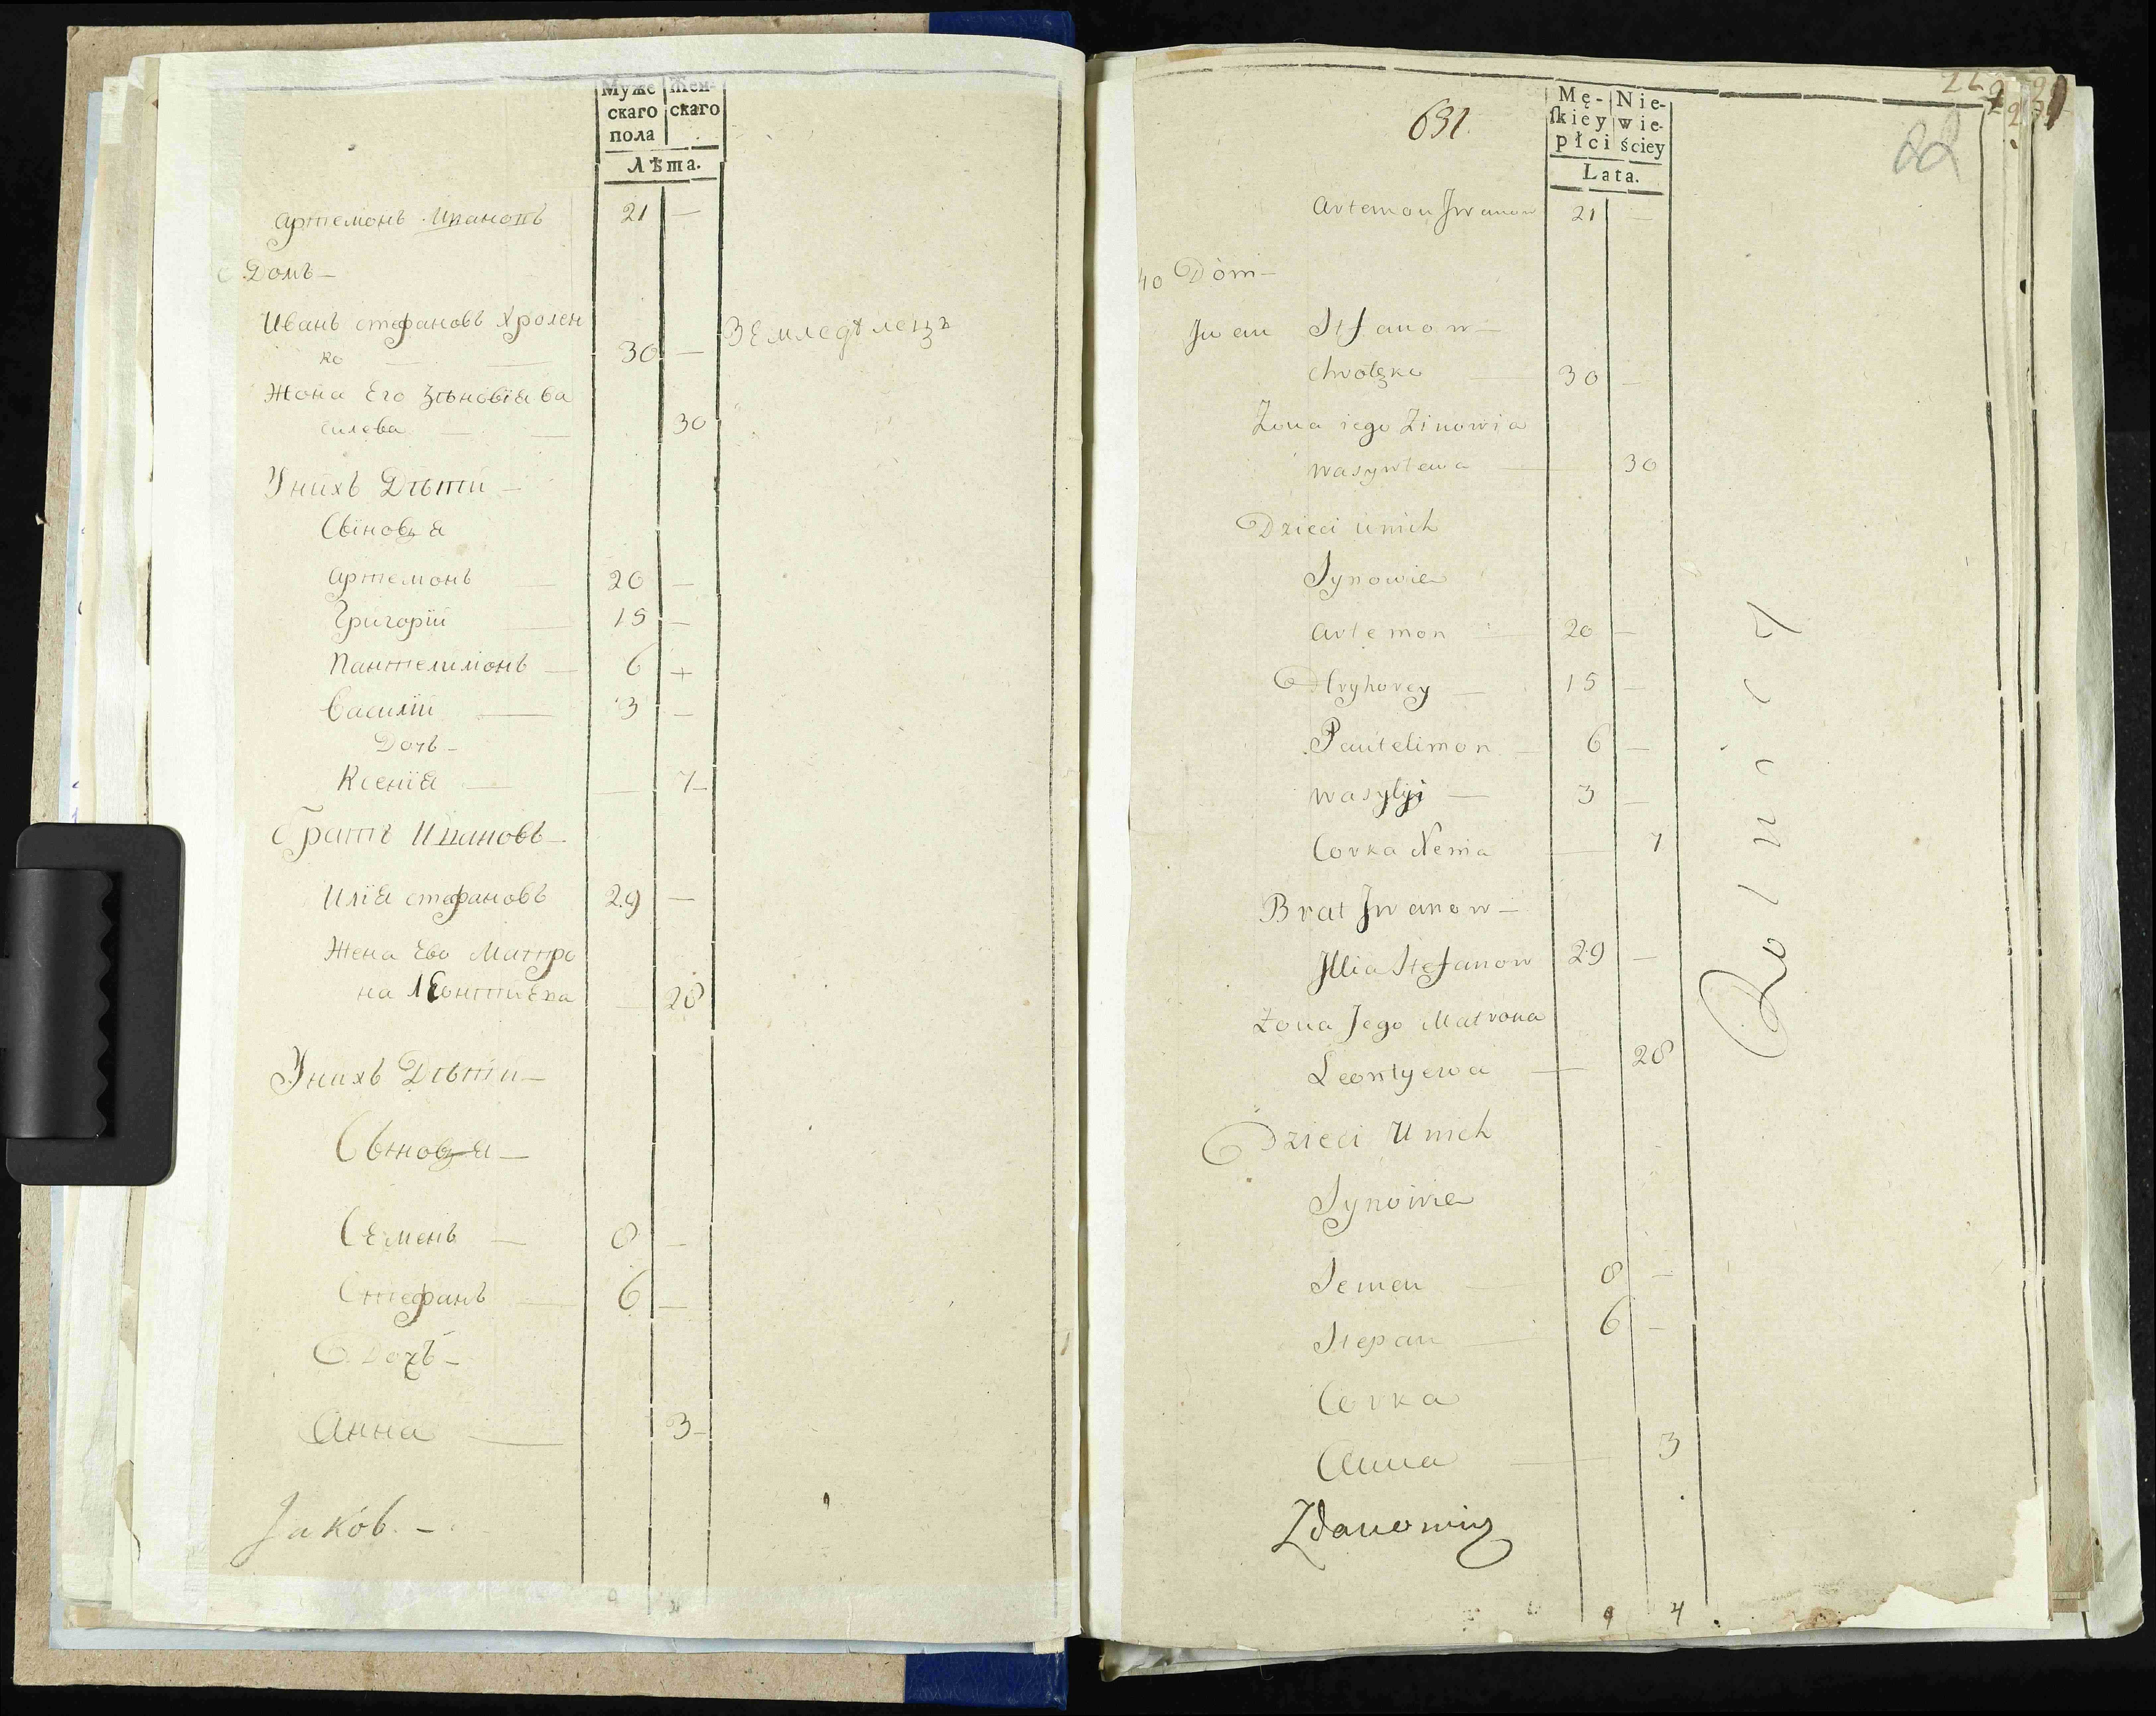 Муже Жен-
скаго скаго
пола
Лѣта.
Артемонъ Ивановъ 21 —
Домъ —
Иванъ стефановъ Хролен
ко — 30 — Землед&лецъ
Жона Его Зѣновіа Ва
силева — 30
Унихъ Дѣти —
Сыновья
Артемонъ — 20 —
Григорій — 15 —
Пантелимонъ — 6 +
Василій — 3 —
Дочъ —
Ксеніа — 7 —
братъ Ивановъ —
Иліа стефановъ 29 —
Жена Ево Матро
на Леонтиева — 28
Унихъ Дѣти —
Сыновья —
Семенъ — 8 —
Стефанъ — 6 —
Дочъ —
Анна — 3 —
Jakób. —
631
22
Mę- Nie-
ſkiey wie-
płci ściey
Lata.
Artemon Jwanow 21 —
40 Dóm —
Jwan Stfanow —
Chrolęko — 30 —
Żona iego Zinowia
Wasywlewa — 30
Dzieci unich
Synowie
Artemon — 20 —
Hryhorey — 15 —
Pantelimon — 6 —
Wasylyi — 3 —
Corka Xenia — 7
Brat Jwanow —
Jllia Stefanow 29 —
Żona Jego Matrona
Leontyewa — 28
Dzieci Unich
Synowie
Semen — 8 —
Stepan — 6 —
Corka
Anna — 3
Zdanowicz
9 4
Rolnicy